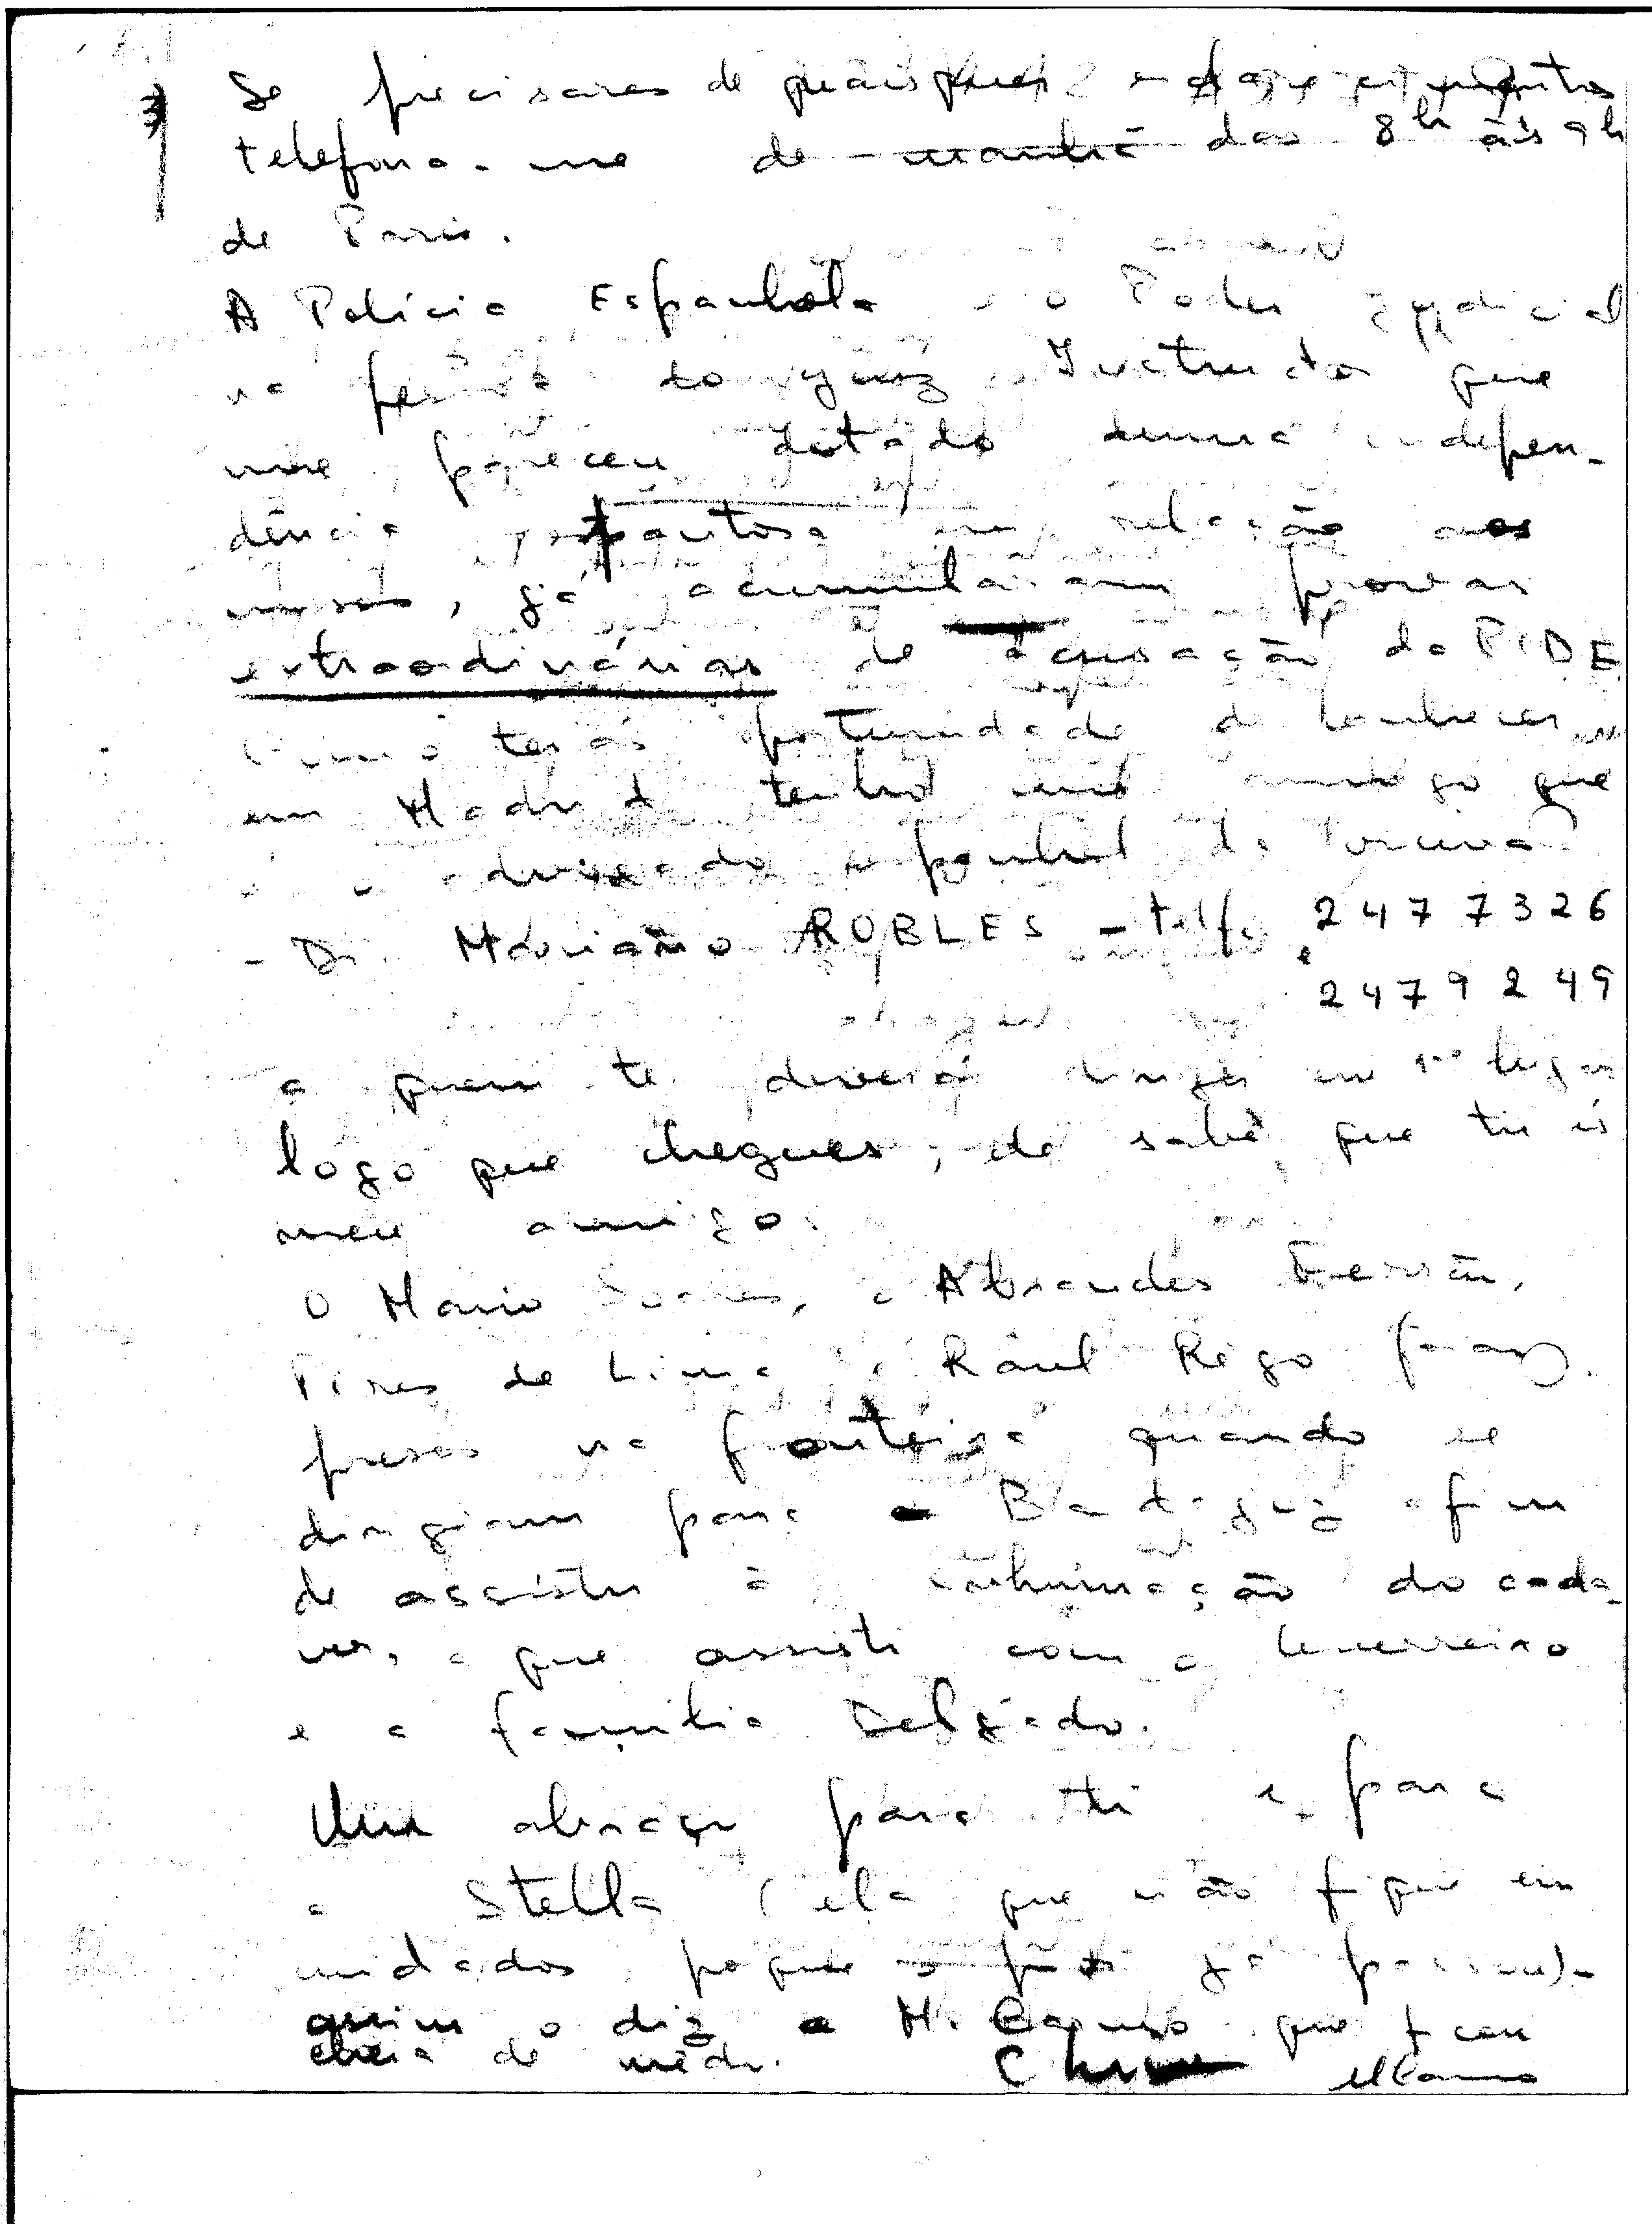 3
Se precisares de quaisquer
telefona-me de manhã das 8h às 9h
de Paris.
A Polícia Espanhola e o Poder Judicial
na pessoa do Juiz Instrutor que
me pareceu dotado duma indepen-
dência espantosa em relação aos
nossos, já acumularam provas
extraordinárias de acusação da PIDE
Como terás oportunidade de conhecer
em Madrid tenho um amigo que
é o advogado espanhol da
- Dr. Mariano ROBLES - telf. 2477326
e
2479249
a quem te deverá dirigir em 1º lugar
logo que chegues, ele sabe que tu és
meu amigo.
O Mario Soares, o Abranches Ferrão,
Pires de Lima e Raúl Rêgo foram
presos na fronteira quando se
dirigiam para Badajoz a fim
de assistir à exhumação do cada-
ver, a que assisti com o
e a família Delgado.
Um abraço para ti e para
a Stella (ela que não fique em
cuidados porque o já passou)-
assim o diz a M. que ficou
cheia de medo.